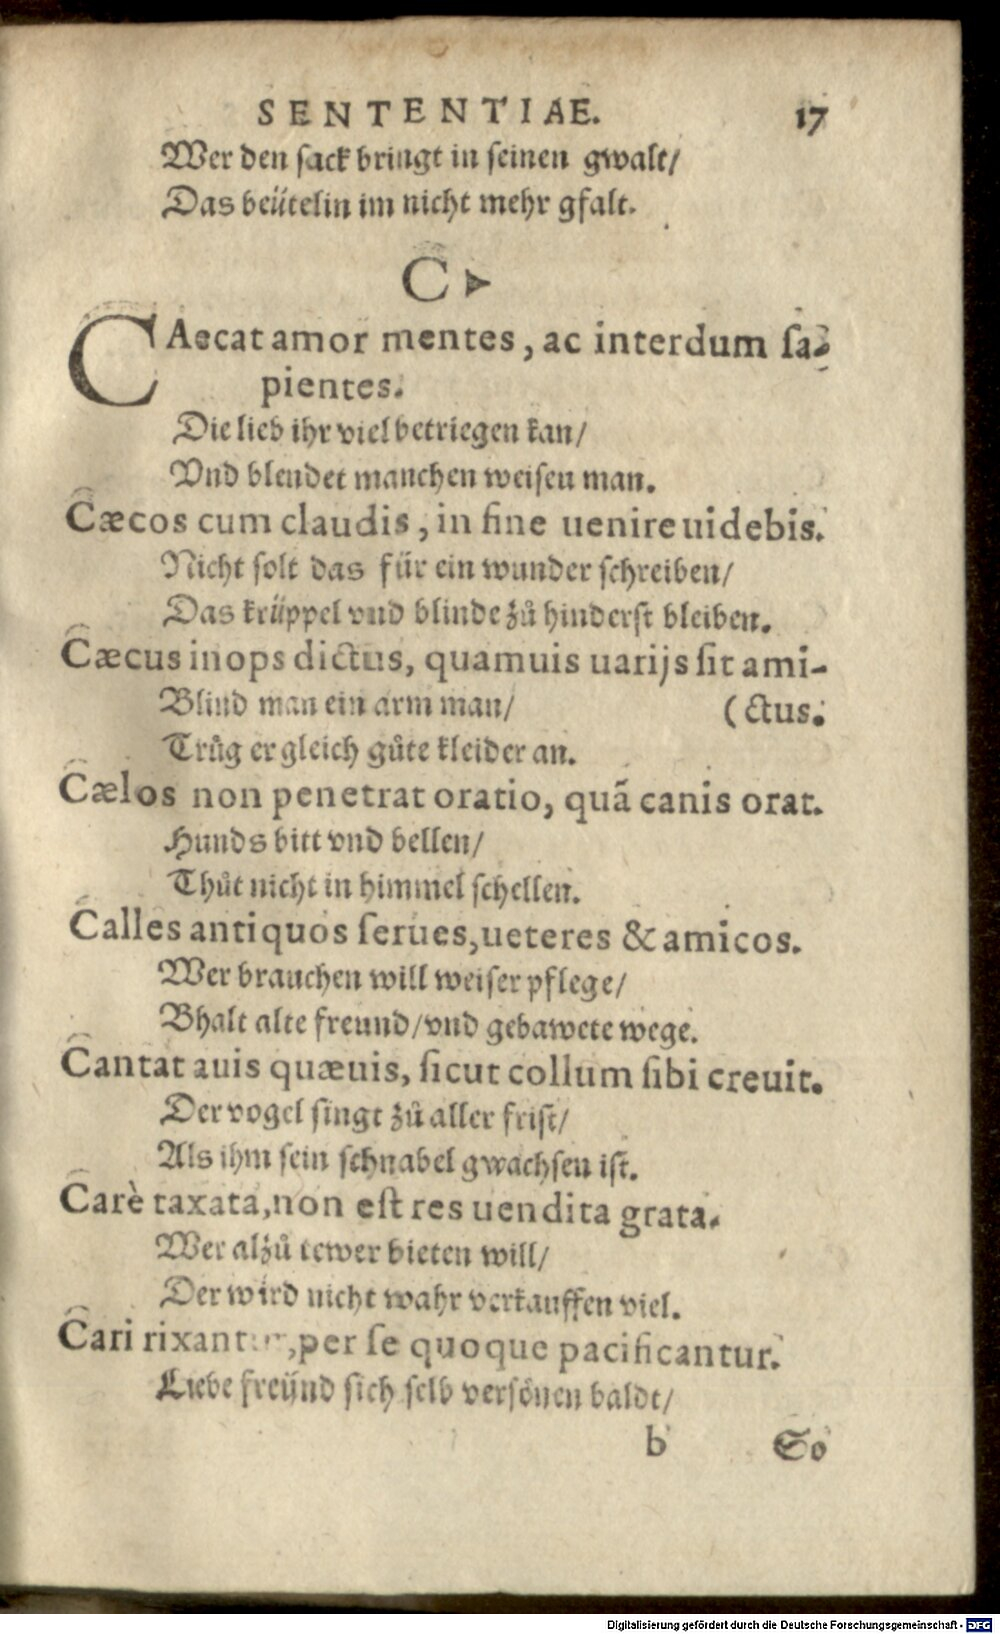 SENTENTIAE. 17
Wer den sack bringt in seinen gwalt/
Das beütelin im nicht mehr gfalt.
C
CAecat amor mentes, ac interdum sa-
pientes.
Die lieb ihr viel betriegen kan/
Vnd blendet manchen weisen man.
Cæcos cum claudis, in fine uenire uidebis.
Nicht solt das für ein wunder schreiben/
Das krüppel vnd blinde zů hinderst bleiben.
Cæcus inops dictus, quamuis uarijs sit ami-
Blind man ein arm man/ (ctus.
Trüg er gleich gůte kleider an.
Cælos non penetrat oratio, quã canis orat.
Hunds bitt vnd bellen/
Thůt nicht in himmel schellen.
Calles antiquos serues, ueteres & amicos.
Wer brauchen will weiser pflege/
Bhalt alte freund/vnd gebawete wege.
Cantat auis quæuis, sicut collum sibi creuit.
Der vogel singt zů aller frist/
Als ihm sein schnabel gwachsen ist.
Carè taxata, non est res uendita grata.
Wer alzů tewer bieten will/
Der wird nicht wahr verkauffen viel.
Cari rixantur, per se quoque pacificantur.
Liebe freünd sich selb versönen baldt/
b So
Digitalisierung gefördert durch die Deutsche Forschungsgemeinschaft - DFG